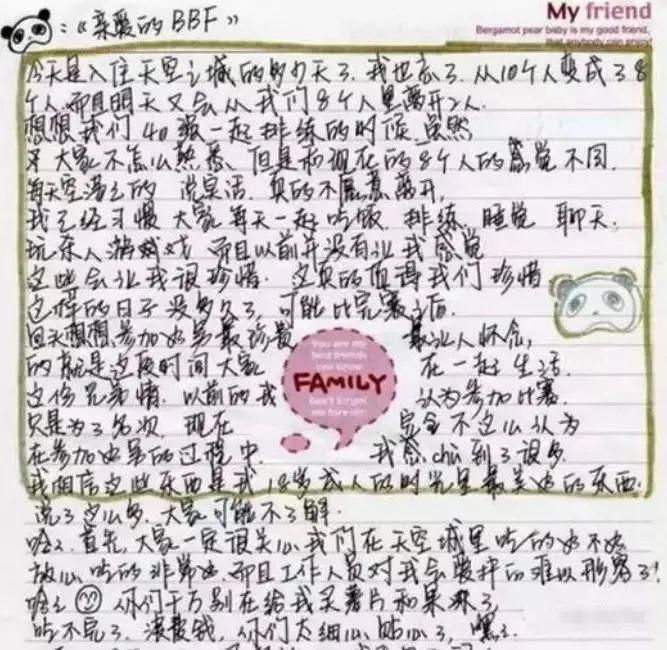 My friend
Bergamot pear baby is my good friend,
that anybody can enjoy!
:《亲爱的BBF》
今天是入住天空之城的多少天了,我也忘了.从10个人变成了8
个人.而且明天又会从我们8个人里离开2人.
想想我们40强一起排练的时候,虽然
大家不怎么熟悉、但是和现在的8个人的感觉不同.
每天空荡荡的 说实话,真的不愿意离开,
我已经习惯 大家每天一起吃饭 排练、睡觉 聊天.
游戏 而且以前并没有让我感觉
这些会让我很珍惜. 这真的值得我们珍惜
这样的日子没多久了,可能比完赛之后.
回头想想参加 最珍贵 最让人怀念,
的就是这段时间大家 在一起生活.
这份兄弟情.以前的我 认为参加比赛.
只是为了名次,现在 完全不这么认为
在参加 的过程中. 我感chù到了很多.
我相信这些东西是我18岁成人的时光里最美好的东西.
说了这么多,大家可能不了解.
哈哈.首先,大家一定很关心我们在天空城里吃的好不好
放心吃的非常好.而且工作人员对我会照顾的难以形容了!
哈哈 你们千万别在给我买薯片和果冻了
吃不完了.浪费钱,你们太细心贴心了,嘿嘿.
You are my
best friends
you know
FAMILY
Don't forget
me forever